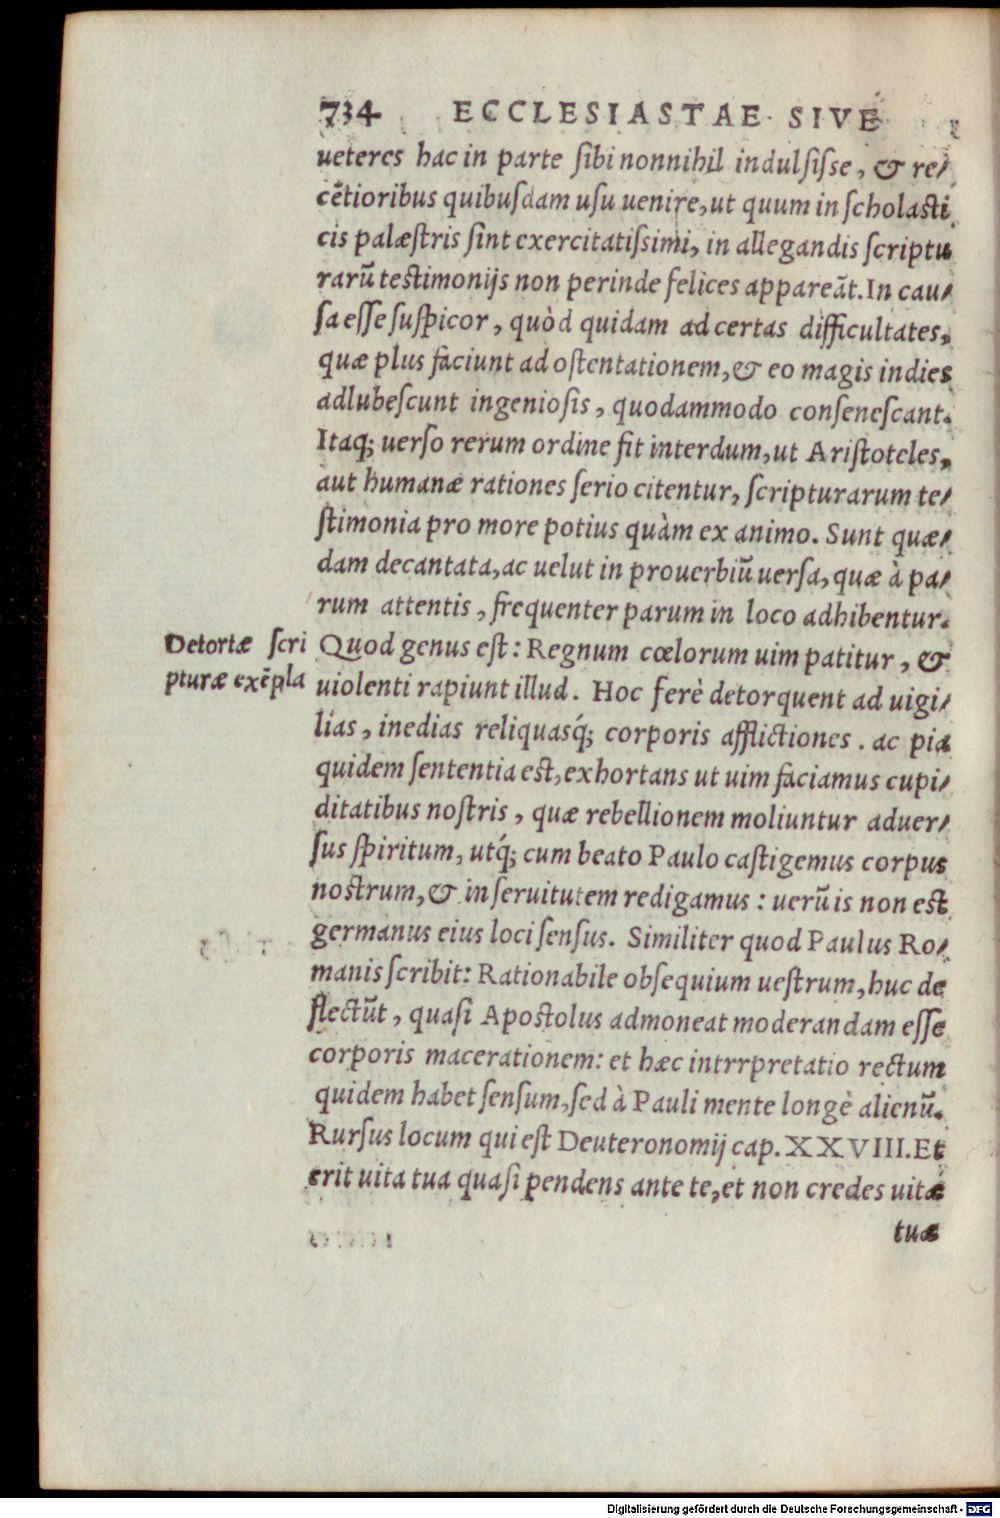 734 ECCLESIASTAE SIVE
ueteres hac in parte ſibi nonnihil indulſiſse, & re/
cẽtioribus quibuſdam uſu uenire, ut quum in ſcholasti
cis palæſtris ſint exercitatiſsimi, in allegandis ſcriptu
rarũ testimonijs non perinde felices appareãt. In cau/
ſa eſſe ſuſpicor, quòd quidam ad certas difficultates,
quæ plus faciunt ad oſtentationem, & eo magis indies
adlubeſcunt ingeniosis, quodammodo conſeneſcant.
Itaq; uerſo rerum ordine fit interdum, ut Ariſtoteles,
aut humanæ rationes ſerio citentur, ſcripturarum te/
ſtimonia pro more potius quàm ex animo. Sunt quæ/
dam decantata, ac uelut in prouerbiũ uerſa, quæ à pa/
rum attentis, frequenter parum in loco adhibentur.
Detortæ ſcri
pturæ exẽpla
Quod genus eſt: Regnum cœlorum uim patitur, &
uiolenti rapiunt illud. Hoc ferè detorquent ad uigi/
lias, inedias reliquasq́; corporis afflictiones. ac pia
quidem ſententia est, exhortans ut uim faciamus cupi/
ditatibus noſtris, quæ rebellionem moliuntur aduer/
ſus ſpiritum, utq́; cum beato Paulo caſtigemus corpus
nostrum, & in ſeruitutem redigamus: uerũ is non est
germanus eius loci ſenſus. Similiter quod Paulus Ro/
manis ſcribit: Rationabile obſequium ueſtrum, huc de
flectũt, quaſi Apoſtolus admoneat moderandam eſſe
corporis macerationem: et hæc intrrpretatio rectum
quidem habet ſenſum, ſed à Pauli mente longè alienũ.
Rurſus locum qui eſt Deuteronomij cap. XXVIII. Et
erit uita tua quaſi pendens ante te, et non credes uitæ
tuæ
Digitalisierung gefördert durch die Deutsche Forschungsgemeinschaft - DFG